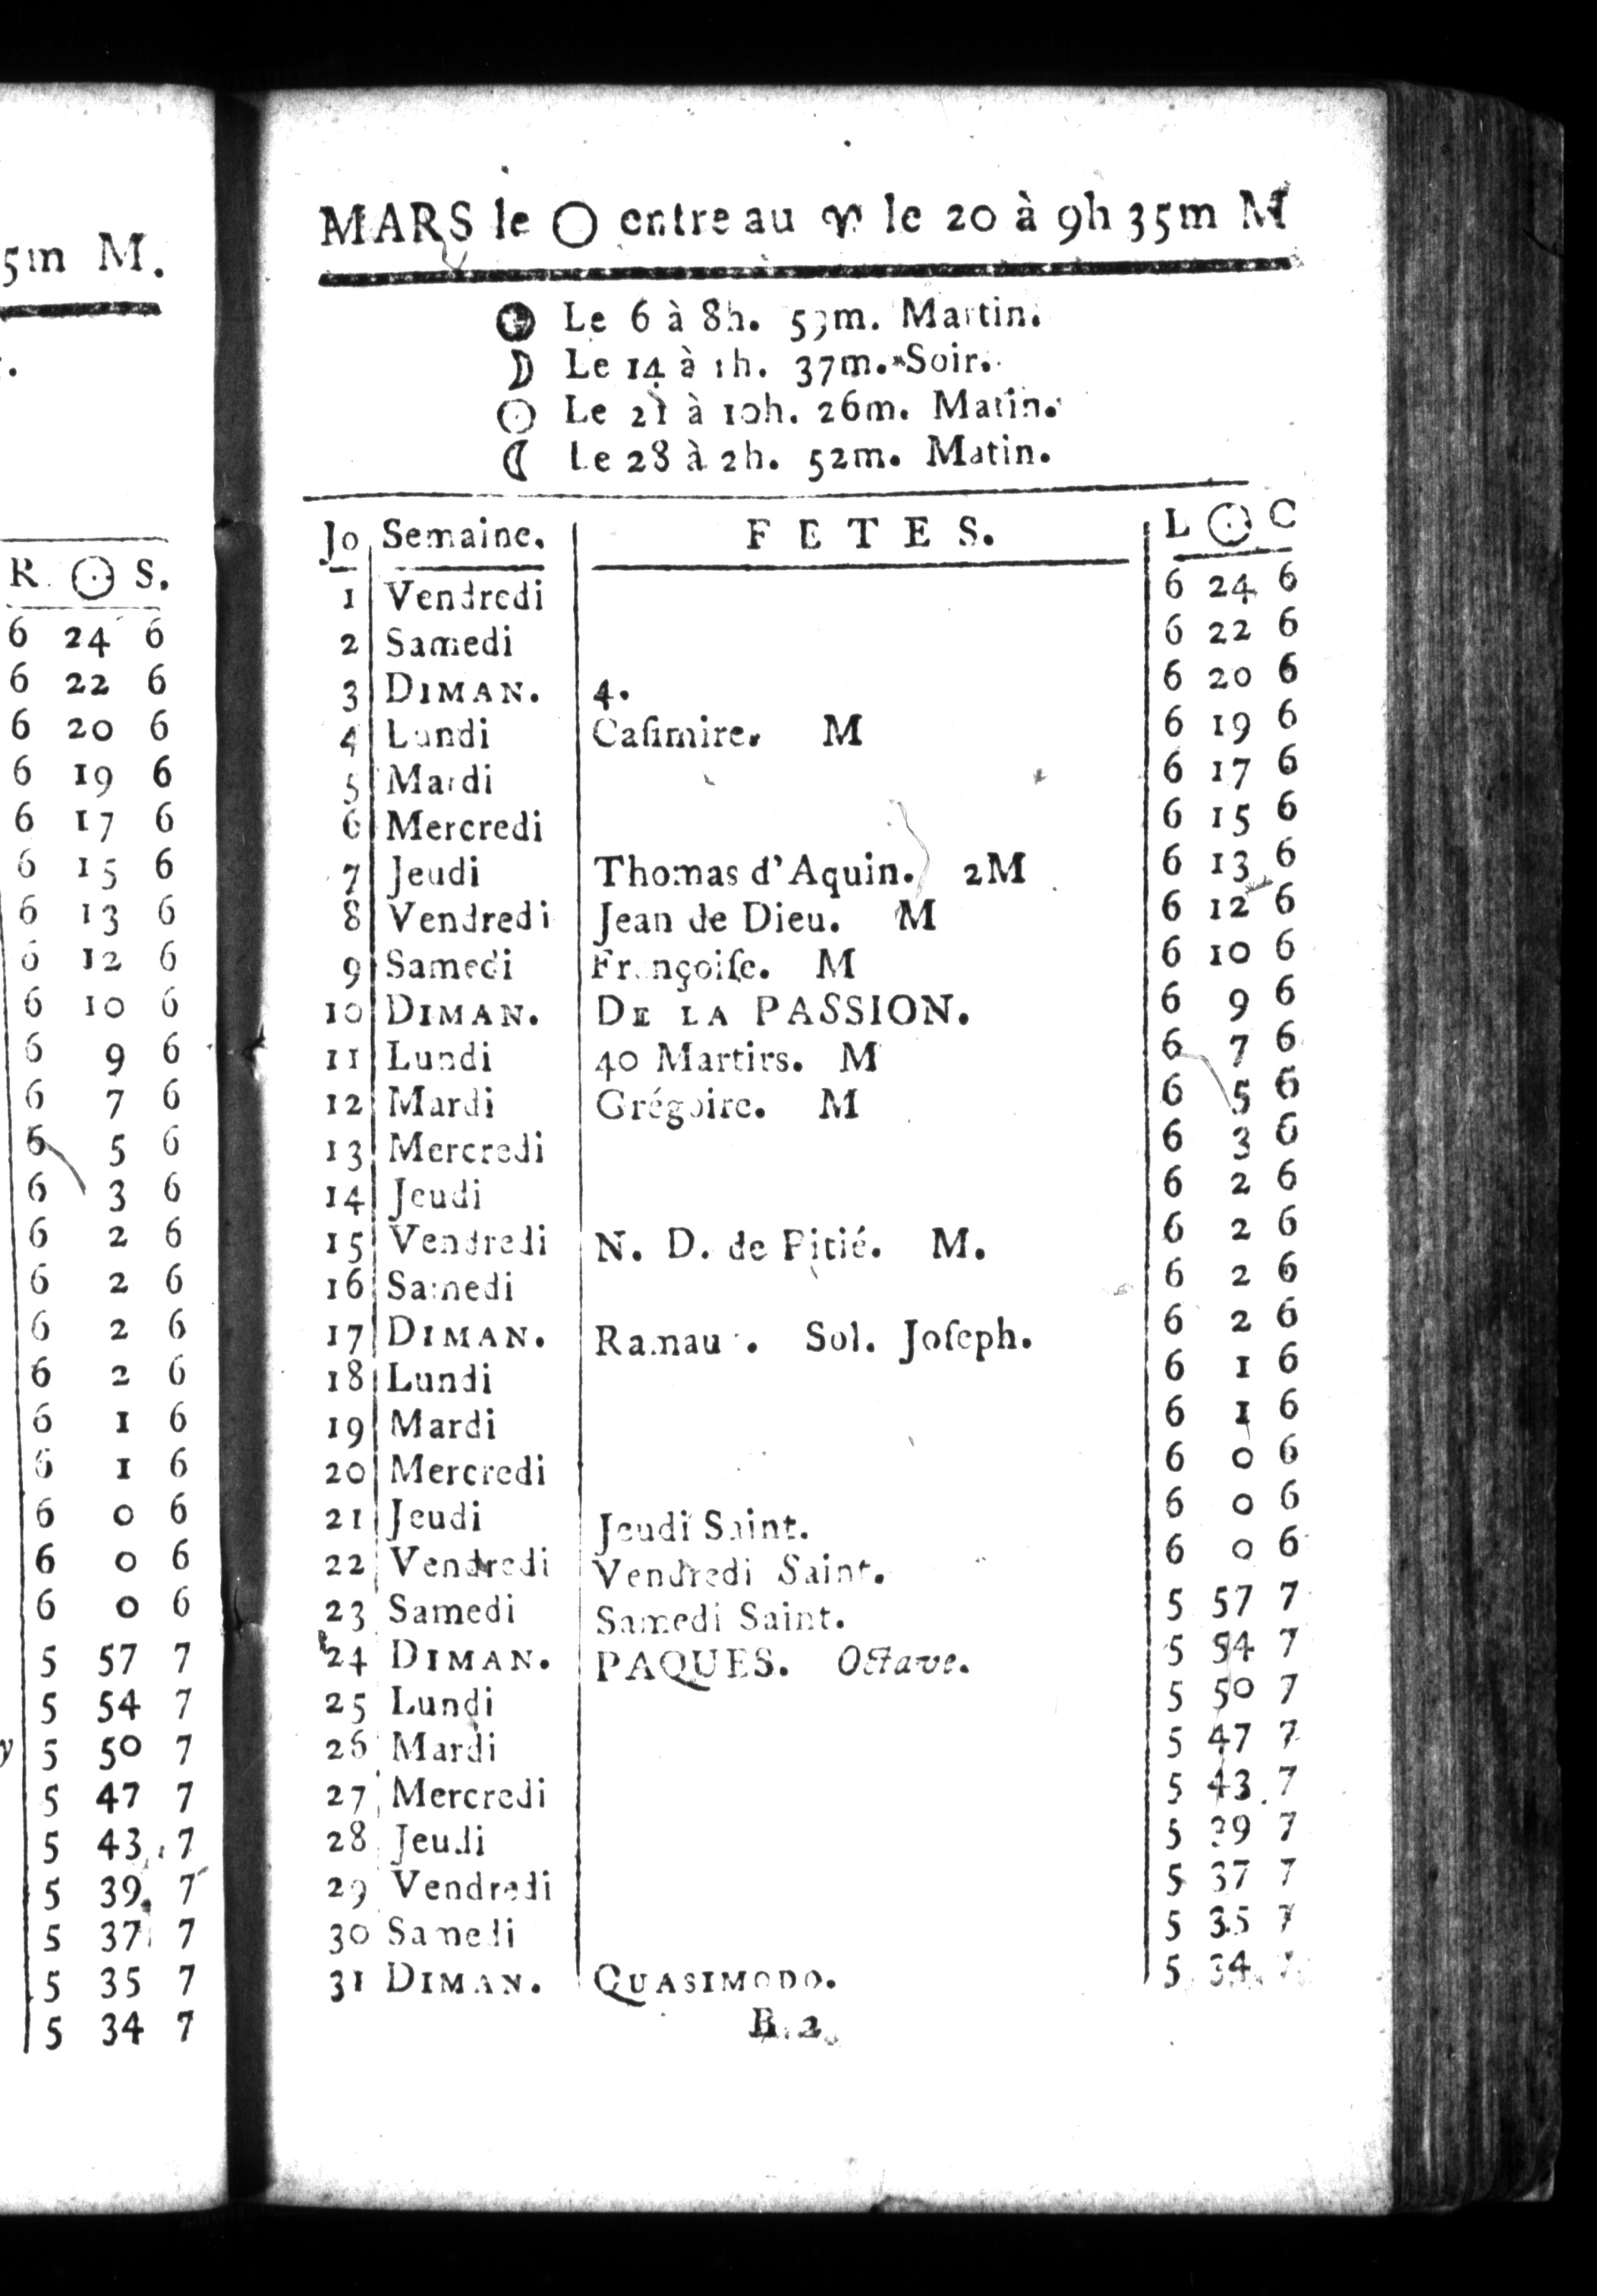 5m M.
R. ☉ S.
6 24 6
6 22 6
6 20 6
6 19 6
6 17 6
6 15 6
6 13 6
6 12 6
6 10 6
6 9 6
6 7 6
6 5 6
6 3 6
6 2 6
6 2 6
6 2 6
6 2 6
6 1 6
6 1 6
6 0 6
6 0 6
6 0 6
5 57 7
5 54 7
y 5 50 7
5 47 7
5 43 7
5 39 7
5 37 7
5 35 7
5 34 7
MARS le ◯ entre au ♈ le 20 à 9h 35m M
Le 6 à 8h. 53m. Martin.
☽ Le 14 à 1h. 37m. Soir.
☉ Le 21 à 10h. 26m. Matin.
☾ Le 28 à 2h. 52m. Matin.
Jo Semaine. FETES. L ☉ C
1 Vendredi 6 24 6
2 Samedi 6 22 6
3 DIMAN. 4. 6 20 6
4 Lundi Caſimire. M 6 19 6
5 Mardi 6 17 6
6 Mercredi 6 15 6
7 Jeudi Thomas d'Aquin. 2M 6 13 6
8 Vendredi Jean de Dieu. M 6 12 6
9 Samedi Françoiſe. M 6 10 6
10 DIMAN. DE LA PASSION. 6 9 6
11 Lundi 40 Martirs. M 6 7 6
12 Mardi Grégoire. M 6 5 6
13 Mercredi 6 3 6
14 Jeudi 6 2 6
15 Vendredi N. D. de Pitié. M. 6 2 6
16 Samedi 6 2 6
17 DIMAN. Rameaux. Sol. Joſeph. 6 2 6
18 Lundi 6 1 6
19 Mardi 6 1 6
20 Mercredi 6 0 6
21 Jeudi Jeudi Saint. 6 0 6
22 Vendredi Vendredi Saint. 6 0 6
23 Samedi Samedi Saint. 5 57 7
24 DIMAN. PAQUES. Octave. 5 54 7
25 Lundi 5 50 7
26 Mardi 5 47 7
27 Mercredi 5 43 7
28 Jeudi 5 39 7
29 Vendredi 5 37 7
30 Samedi 5 35 7
31 DIMAN. QUASIMODO. 5 34 7
B 2